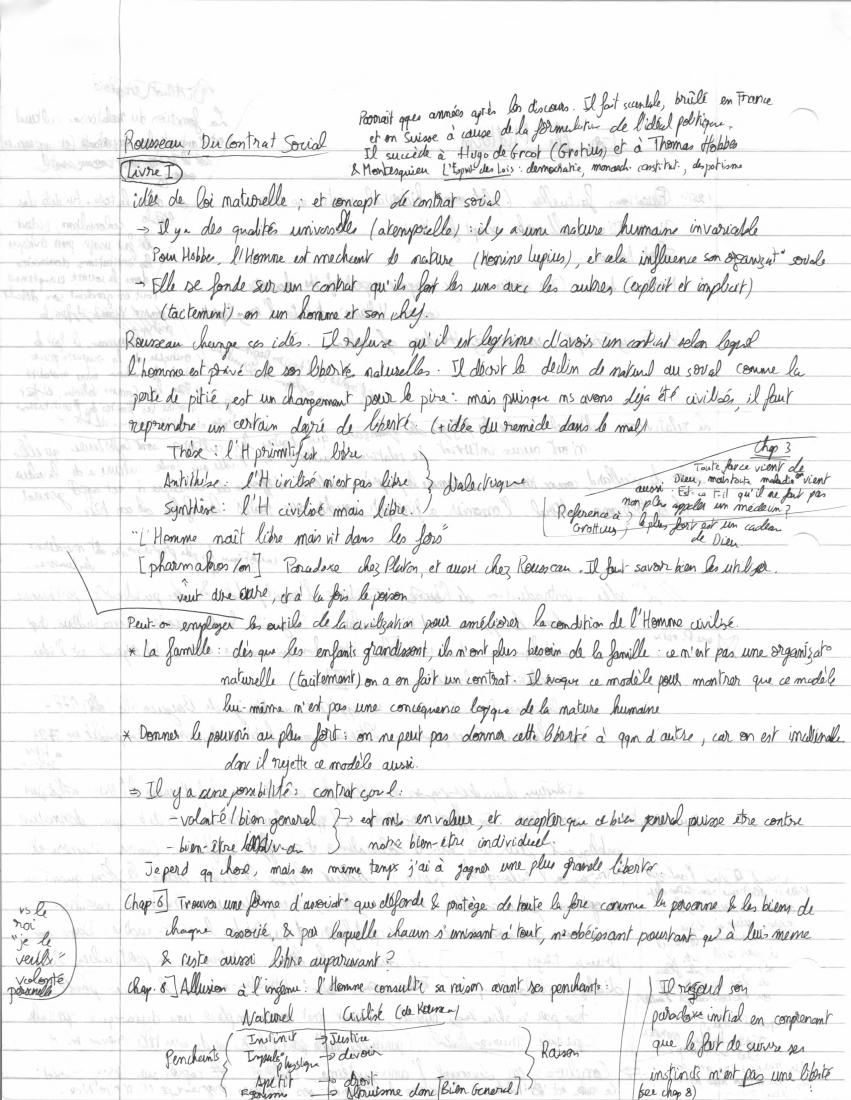 Rousseau, Du Contrat Social
Livre I
Paraît qques années après les discours. Il fait scandale, brûlé en France
et en Suisse à cause de la formulation de l'idéal politique.
Il succède à Hugo de Groot (Grotius) et à Thomas Hobbes
& Montesquieu L'Esprit des Lois : democratie, monarch. constitut., despotisme
idée de loi naturelle ; et concept de contrat social
→ Il y a des qualités universelles (atemporelle) : il y a une nature humaine invariable
Pour Hobbe, l'Homme est mechant de nature (homine lupius), et cela influence son organizat° sociale
→ Elle se fonde sur un contrat qu'ils font les uns avec les autres (explicit et implicit)
(tactement) on un homme et son chef.
Rousseau change ces idés. Il refuse qu'il est legitime d'avois un contrat selon lequel
l'homme est privé de ses liberté naturelles. Il décrit le declin de naturel au social comme la
perte de pitié, est un changement pour le pire : mais puisque ns avons déja été civilisés, il faut
reprendre un certain degré de liberté. (+ idée du remède dans le mal)
Thèse : l'H primitif est libre
Antithèse : l'H civilisé n'est pas libre
Synthèse : l'H civilisé mais libre.
Dialectique
"L'Homme naît libre mais vit dans les fers"
Chap 3
Toute force vient de
Dieu, mais toute maladie en vient
aussi : Est-ce t-il qu'il ne faut pas
non plus appeler un médecin ?
Reference à
Grotius ; le plus fort est un cadeau
de Dieu
[pharmakos/on] Paradoxe chez Platon, et aussi chez Rousseau. Il faut savoir bien les utiliser.
veut dire cure, et à la fois le poison
Peut-on employer les outils de la civilization pour améliorer la condition de l'Homme civilisé.
* La famille : dès que les enfants grandissent, ils n'ont plus besoin de la famille : ce n'est pas une organizat°
naturelle (tacitement) on a en fait un contrat. Il evoque ce modèle pour montrer que ce modèle
lui-même n'est pas une conséquence logique de la nature humaine
* Donner le pouvoir au plus fort : on ne peut pas donner cette liberté à qqn d'autre, car on est
donc il rejette ce modèle aussi.
⇒ Il y a une possibilité : contrat social :
- volonté/bien general
- bien-être
→ est mis en valeur, et accepter que ce bien general puisse être contre
notre bien-être individuel.
Je perd qq chose, mais en même temps j'ai à gagner une plus grande liberté.
Chap. 6] Trouver une forme d'associat° que défende & protège de toute la force comune la personne & les biens de
chaque associé, & par laquelle chacun s'unissant à tout, n'obéissant pourtant qu'à luis meme
& reste aussi libre auparavant ?
vs le
roi
"je le
veult"
volonté
personelle
Chap. 8] Allusion à l'ingenu : l'Homme consulte sa raison avant ses penchants :
Naturel | Civilisé
Penchants
Instinct → Justice
Impuls° physique → devoir
Apétit → droit
Egoïsme → Altruisme donc [Bien General]
Raison
Il resoud son
paradoxe initial en comprenant
que le fait de suivre ses
instincts n'est pas une liberté
(see chap 8)